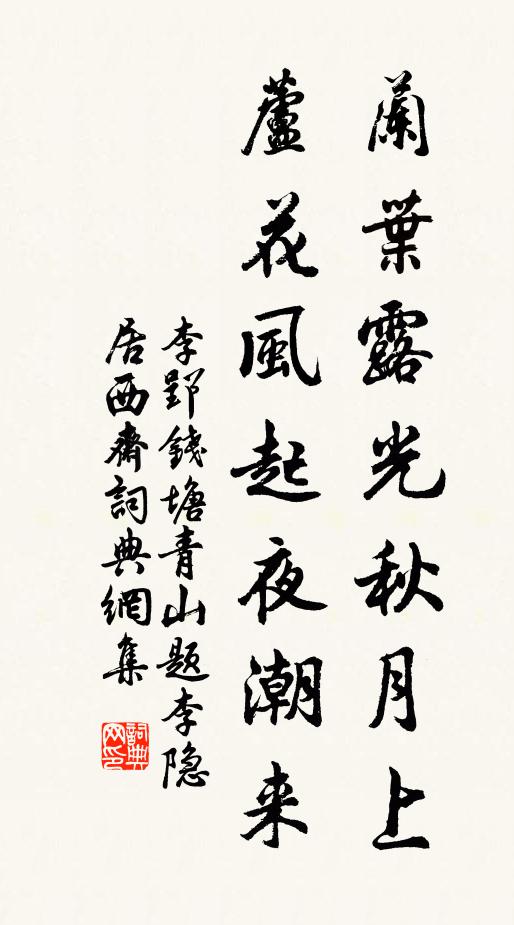 蘭葉露光秋月上
蘆花風起夜潮来
李郢錢塘青山题李隐
居西齋詞典網集
詞典
网印